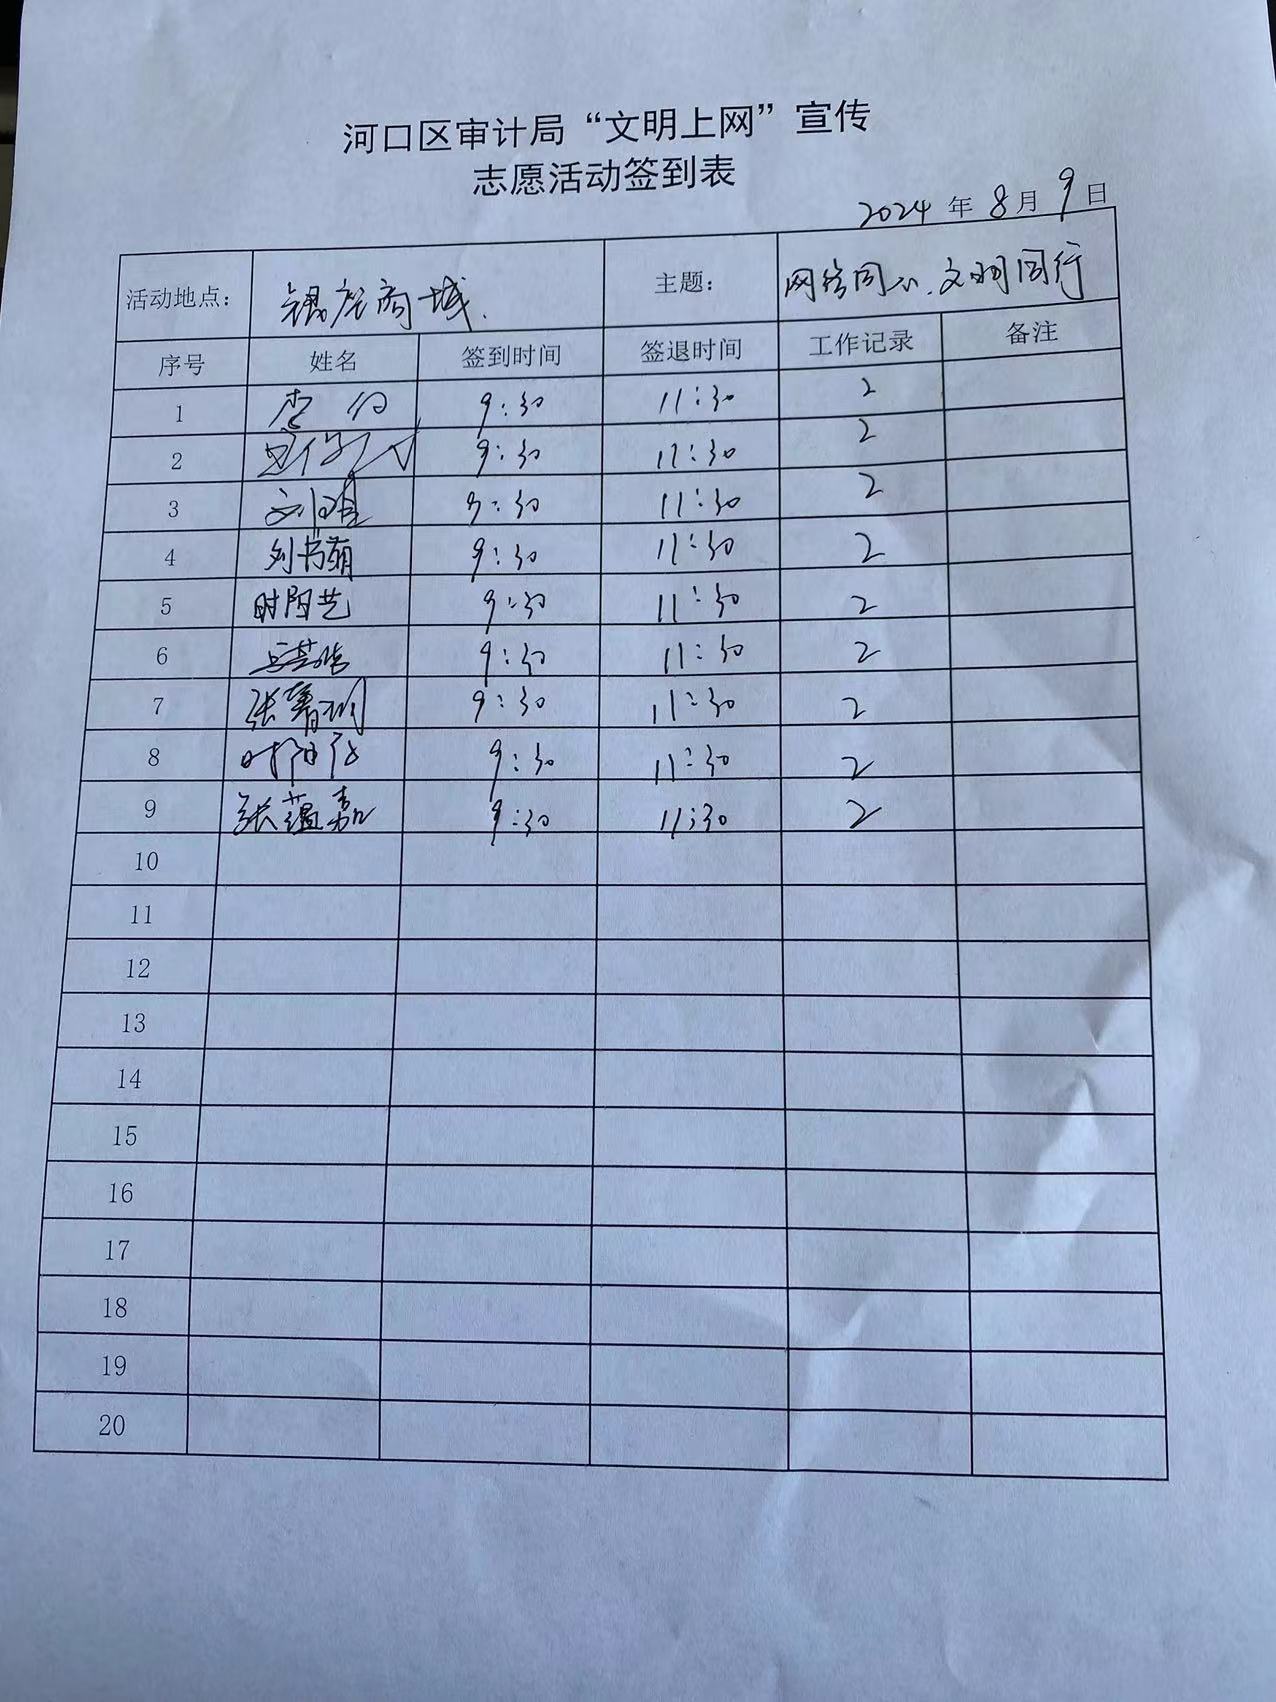 河口区审计局“文明上网”宣传
志愿活动签到表
2024 年 8 月 9 日
活动地点： 银座商城. 主题： 网络同心.文明同行
序号 姓名 签到时间 签退时间 工作记录 备注
1 李 9:30 11:30 2
2 9:30 11:30 2
3 9:30 11:30 2
4 刘书萌 9:30 11:30 2
5 时阳艺 9:30 11:30 2
6 9:30 11:30 2
7 张馨翔 9:30 11:30 2
8 时阳 9:30 11:30 2
9 张蕴嘉 9:30 11:30 2
10
11
12
13
14
15
16
17
18
19
20